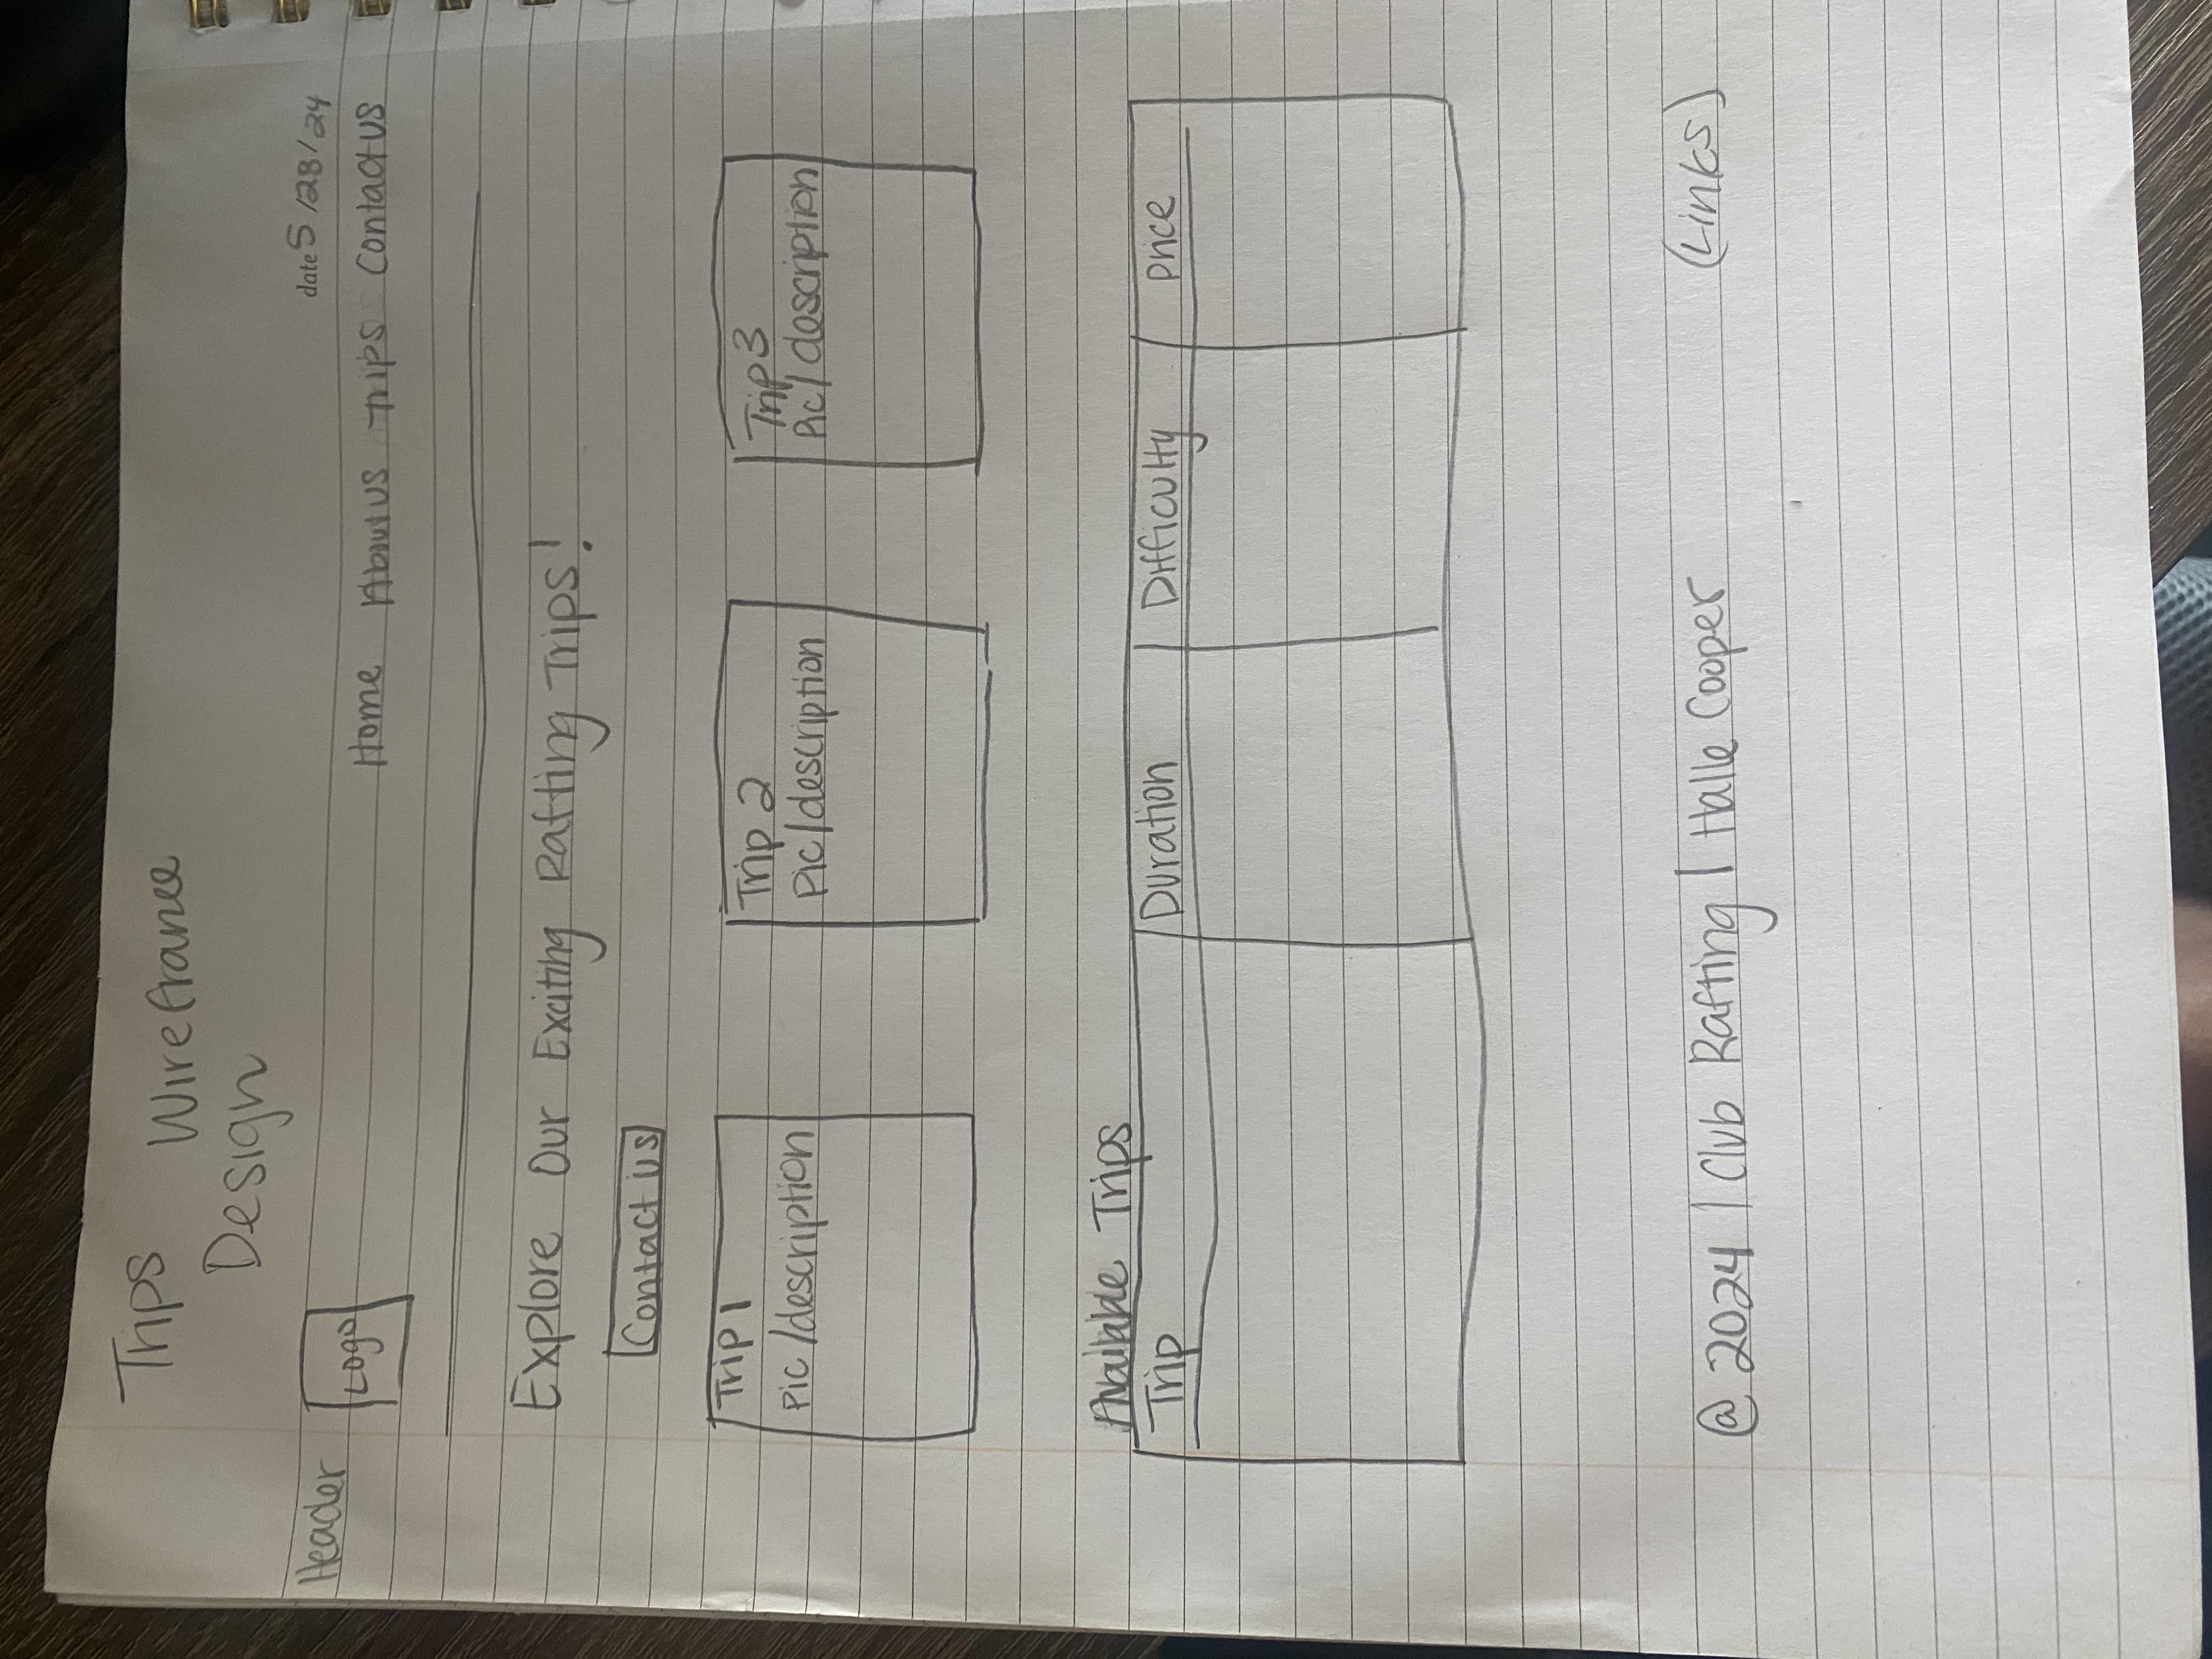 Trips Wireframe
Design
date 5/28/24
Header Logo Home About us Trips Contact us
Explore Our Exciting Rafting Trips!
Contact us
Trip 1 Trip 2 Trip 3
Pic/description Pic/description Pic/description
Available Trips
Trip Duration Difficulty Price
@ 2024 | Club Rafting | Halle Cooper (Links)